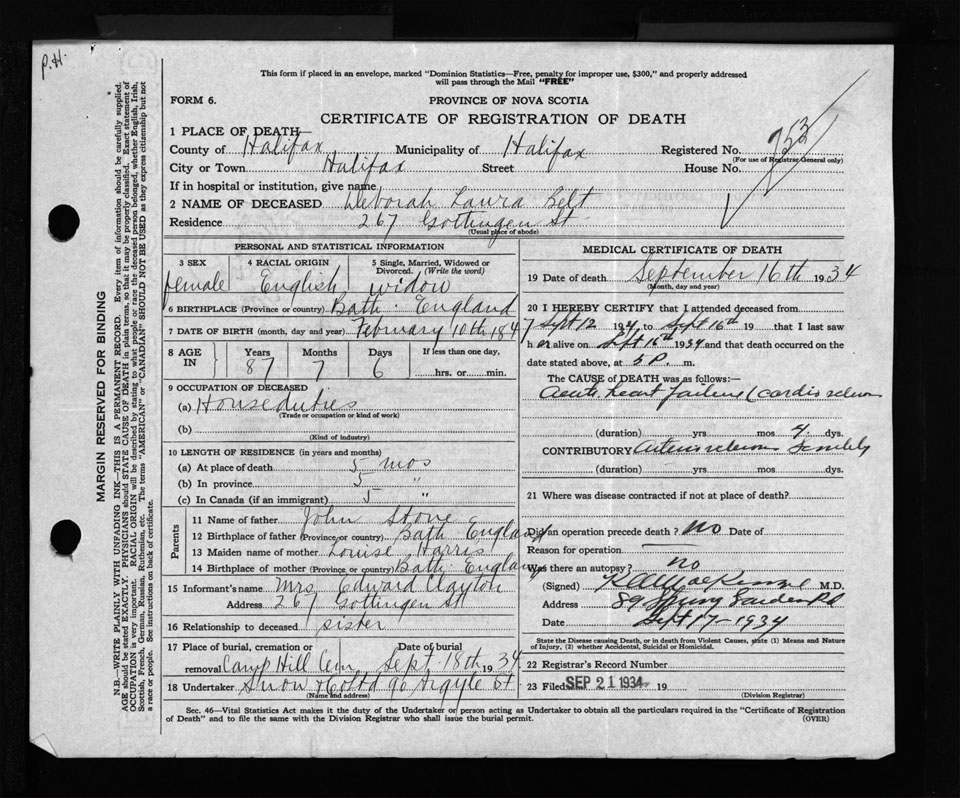 P.H.
This form if placed in an envelope, marked "Dominion Statistics—Free, penalty for improper use, $300," and properly addressed
will pass through the Mail "FREE"
FORM 6.
PROVINCE OF NOVA SCOTIA
CERTIFICATE OF REGISTRATION OF DEATH
1 PLACE OF DEATH—
County of Halifax Municipality of Halifax Registered No. 953
(For use of Registrar General only)
City or Town Halifax Street House No.
If in hospital or institution, give name
2 NAME OF DECEASED Deborah Laura Belt
Residence 267 Gottingen St
(Usual place of abode)
PERSONAL AND STATISTICAL INFORMATION
3 SEX 4 RACIAL ORIGIN 5 Single, Married, Widowed or Divorced. (Write the word)
female English widow
6 BIRTHPLACE (Province or country) Bath England
7 DATE OF BIRTH (month, day and year) February 10th 1847
8 AGE IN Years Months Days If less than one day,
87 7 6 hrs. or min.
9 OCCUPATION OF DECEASED
(a) House duties
(Trade or occupation or kind of work)
(b)
(Kind of industry)
10 LENGTH OF RESIDENCE (in years and months)
(a) At place of death 5 mos
(b) In province 5 "
(c) In Canada (if an immigrant) 5 "
Parents
11 Name of father John Stone
12 Birthplace of father (Province or country) Bath England
13 Maiden name of mother Louise Harris
14 Birthplace of mother (Province or country) Bath England
15 Informant's name Mrs Edward Clayton
Address 267 Gottingen St
16 Relationship to deceased sister
17 Place of burial, cremation or Date of burial
removal Camp Hill Cem Sept 18th 1934
18 Undertaker Snow & Co Ltd 90 Argyle St
(Name and address)
MEDICAL CERTIFICATE OF DEATH
19 Date of death September 16th 1934
(Month, day and year)
20 I HEREBY CERTIFY that I attended deceased from
Sept 12 1934, to Sept 16th 19 that I last saw
her alive on Sept 16th 1934 and that death occurred on the
date stated above, at 5 P. m.
The CAUSE of DEATH was as follows:—
Acute heart failure (cardio
(duration) yrs mos 4 dys.
CONTRIBUTORY
(duration) yrs mos dys.
21 Where was disease contracted if not at place of death?
Did an operation precede death? no Date of
Reason for operation
Was there an autopsy? no
(Signed) MacKenzie M.D.
Address 89 Spring Garden Rd
Date Sept 17-1934
State the Disease causing Death, or in death from Violent Causes, state (1) Means and Nature
of Injury, (2) whether Accidental, Suicidal or Homicidal.
22 Registrar's Record Number
23 Filed SEP 21 1934 19
(Division Registrar)
Sec. 46—Vital Statistics Act makes it the duty of the Undertaker or person acting as Undertaker to obtain all the particulars required in the "Certificate of Registration
of Death" and to file the same with the Division Registrar who shall issue the burial permit.
(OVER)
MARGIN RESERVED FOR BINDING
N.B.—WRITE PLAINLY WITH UNFADING INK—THIS IS A PERMANENT RECORD. Every item of information should be carefully supplied.
AGE should be stated EXACTLY. PHYSICIANS should STATE CAUSE OF DEATH in plain terms, so that it may be properly classified. Exact statement of
OCCUPATION is very important. RACIAL ORIGIN will be described by stating to what people or race the deceased person belonged, whether English, Irish,
Scottish, French, German, Russian, Ruthenian, etc. The terms "AMERICAN" or "CANADIAN" SHOULD NOT BE USED as they express citizenship but not
a race or people. See instructions on back of certificate.